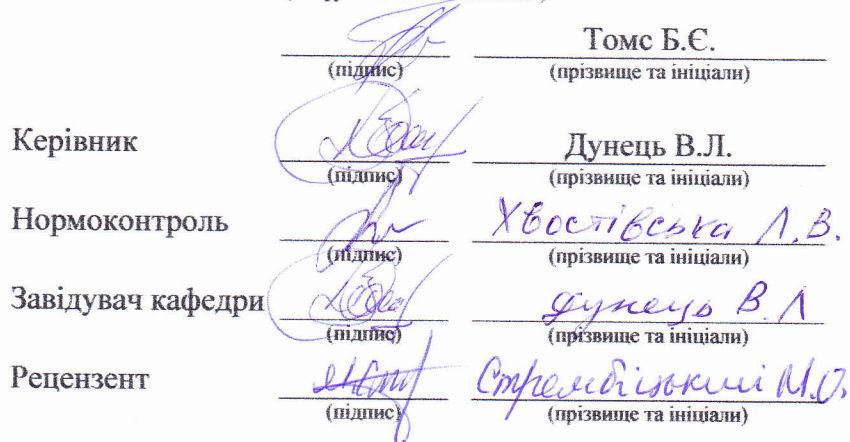 Томс Б.Є.
(підпис) (прізвище та ініціали)
Керівник Дунець В.Л.
(підпис) (прізвище та ініціали)
Нормоконтроль Хвостівська Л.В.
(підпис) (прізвище та ініціали)
Завідувач кафедри Дунець В.Л
(підпис) (прізвище та ініціали)
Рецензент Стрембіцький М.О.
(підпис) (прізвище та ініціали)